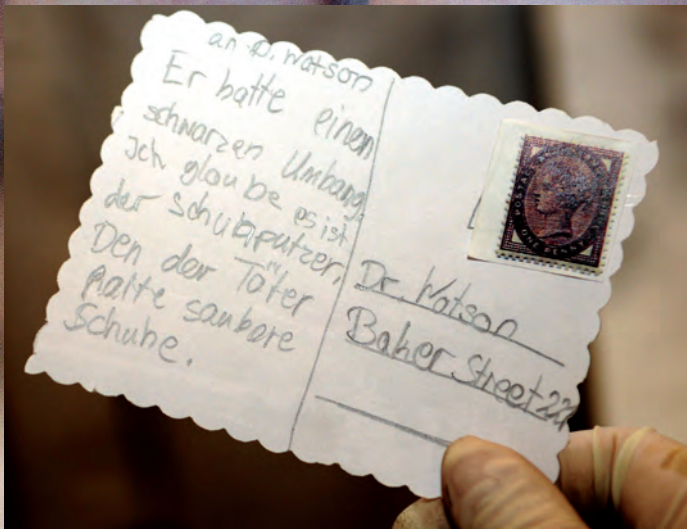 an D. Watson
Er hatte einen
schwarzen Umhang,
Ich glaube es ist
der Schuhputzer,
Den der Täter
hatte saubere
Schuhe.
Dr. Watson
Baker Street 22
POSTAGE
ONE PENNY